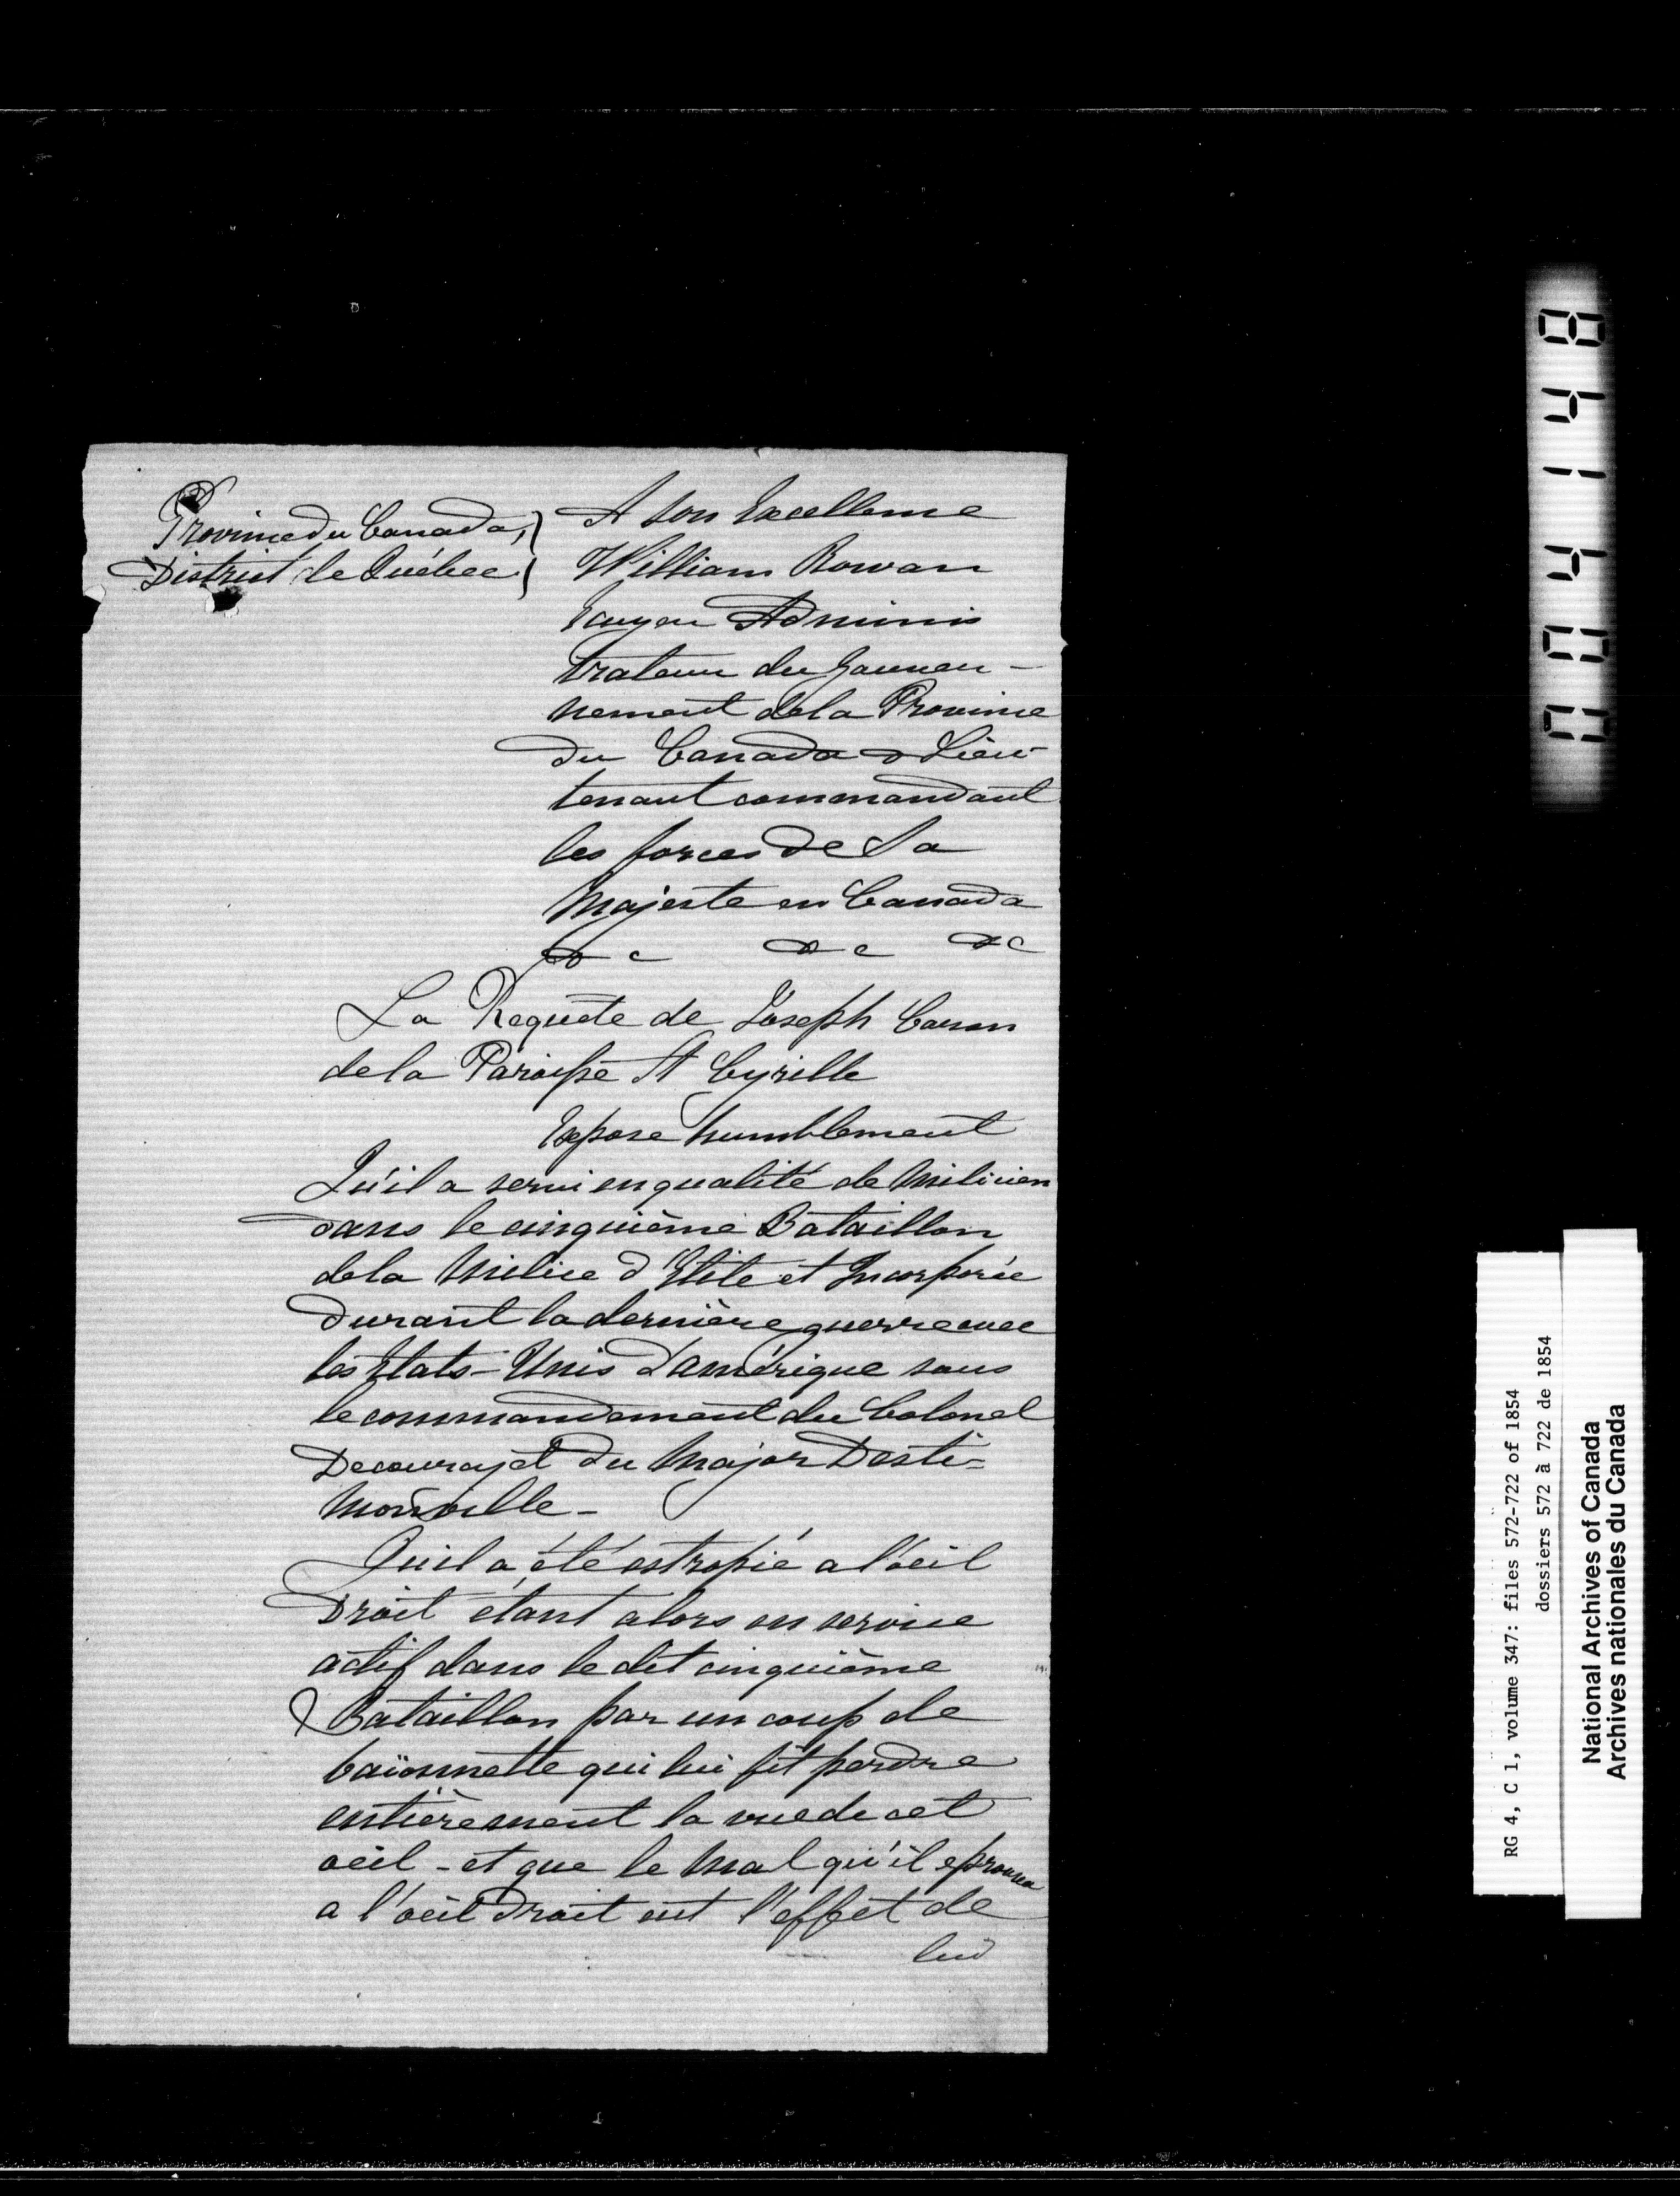 Province du Canada,
District de Québec
A Son Excellence
William Rowan
Ecuyer Adminis
trateur du Gouver-
nement de la Province
du Canada & Lieu-
tenant commandant
les forces de Sa
Majesté en Canada
&c &c &c
La Requête de Joseph Caron
de la Paroisse St Cyrille
Expose humblement
Qu'il a servi en qualité de Milicien
dans le cinquième Bataillon
de la Milice d'Elite et Incorporée
durant la dernière guerre avec
les Etats-Unis d'amérique sous
le commandement du Colonel
Decouray et du Major Desti=
monville-
Qu'il a été estropié a l'oeil
Droit étant alors en service
actif dans le dit cinquième
Bataillon par un coup de
baïonnette qui lui fit perdre
entièrement la vue de cet
oeil - et que le Mal qu'il eprouva
a l'oeil droit eut l'effet de
lui
RG 4, C 1, volume 347: files 572-722 of 1854
dossiers 572 à 722 de 1854
National Archives of Canada
Archives nationales du Canada